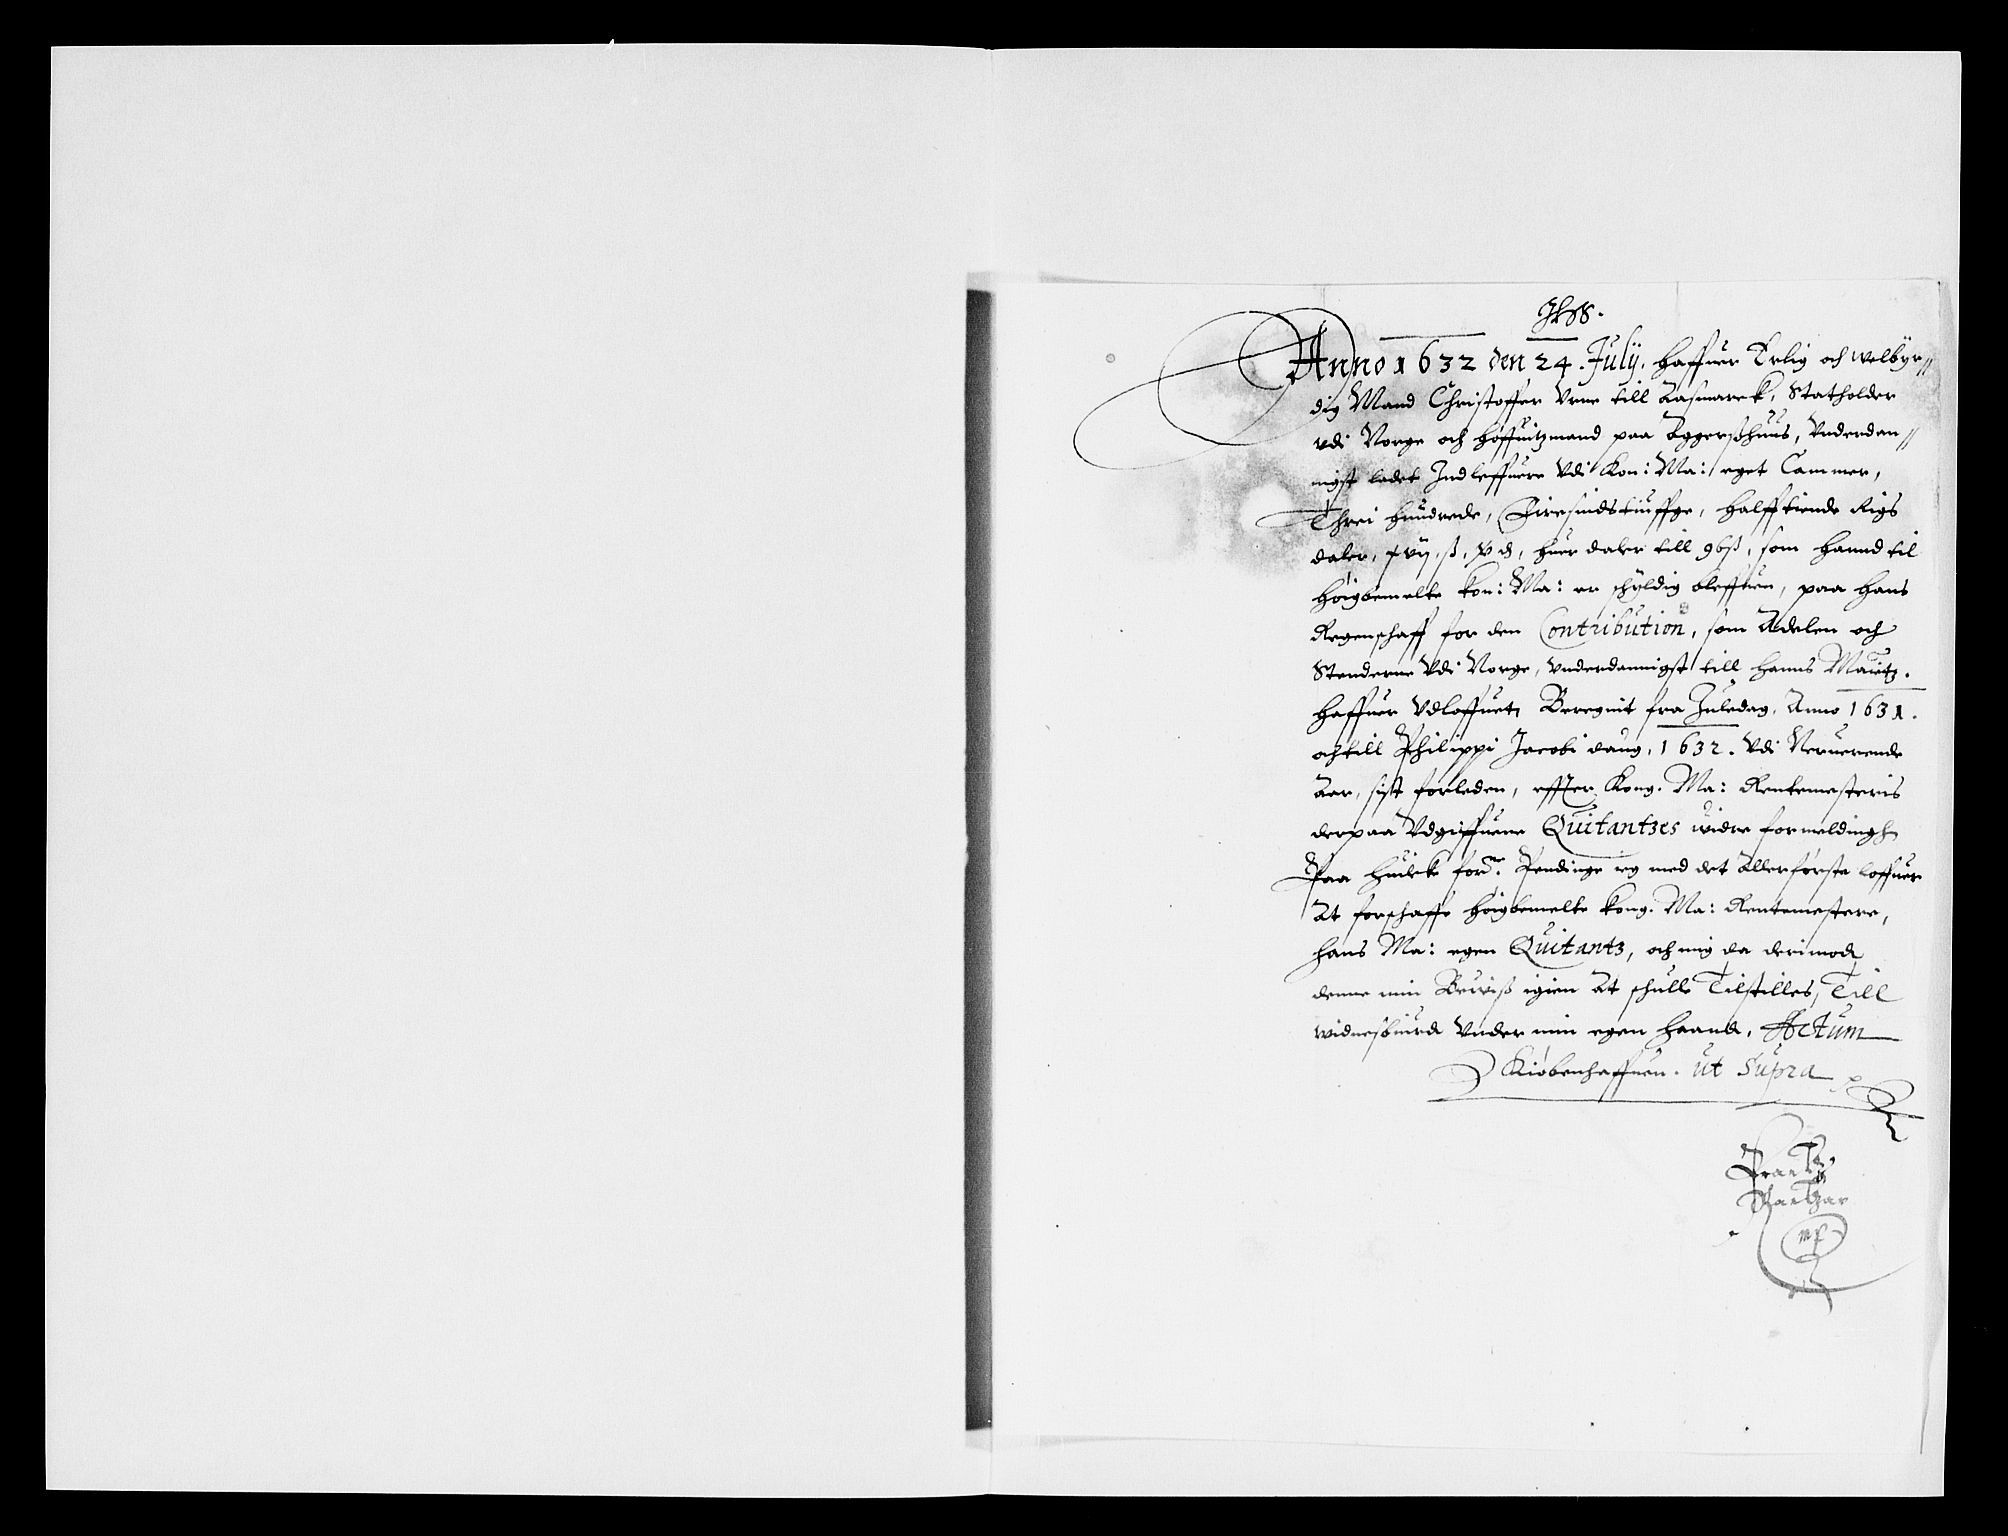 Jhs.
Anno 1632 den 24. Julij. haffuer Erlig och welbyr//
dig Mand Christoffer Vrne till Aasmarck, Statholder
vdi Norge och høffuitzmand paa Aggershuus, Vnderdan//
nigst ladet Indleffuere Vdi Kon: Ma: eget Cammer,
Threi hundrede, Firesindstiuffge, halfftiende Rigs
daler, xvij. ß. v d, huer daler till 96 ß, som hannd til
høigbemelte Kon: Ma: er schyldig bleffuen, paa hans
Regenschaff for den Contribution, som Adelen och
Stenderne Vdi Norge, vnderdannigst till hanns Maietz.
haffuer Vdloffuet, Beregnit fra Juledag. Anno 1631.
och till Philippi Jacobi daug. 1632. Vdi Neruerende
Aar, sist forleden, effter Kong. Ma: Rentemesteris
derpaa Vdgiffuene Quitantzes widre formeldingh
Paa huilcke forne. Pendinge ieg med det Allerførste loffuer
At forschaffe høigbemelte Kong. Ma: Rentemestere,
hans Ma: egen Quitantz, och mig da derimod
denne min Beviss igien At schulle Tilstilles, Till
widnesbiurd Vnder min egen haand. Actum
Kiøbenhaffuen. ut Supra
mp